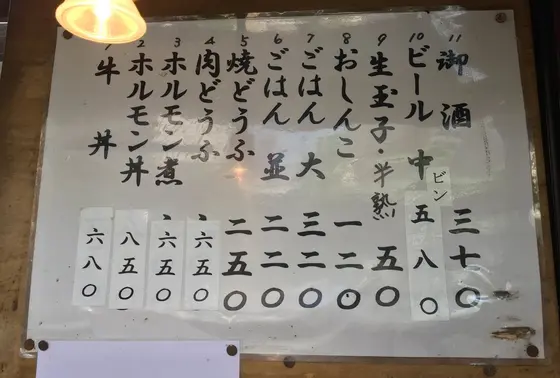 11 御酒 三七〇
10 ビール 中ビン 五八〇
9 生玉子・半熟 五〇
8 おしんこ 一二〇
7 ごはん 大 三二〇
6 ごはん 並 二二〇
5 焼どうふ 二五〇
4 肉どうふ 六五〇
3 ホルモン煮 六五〇
2 ホルモン丼 八五〇
1 牛丼 六八〇